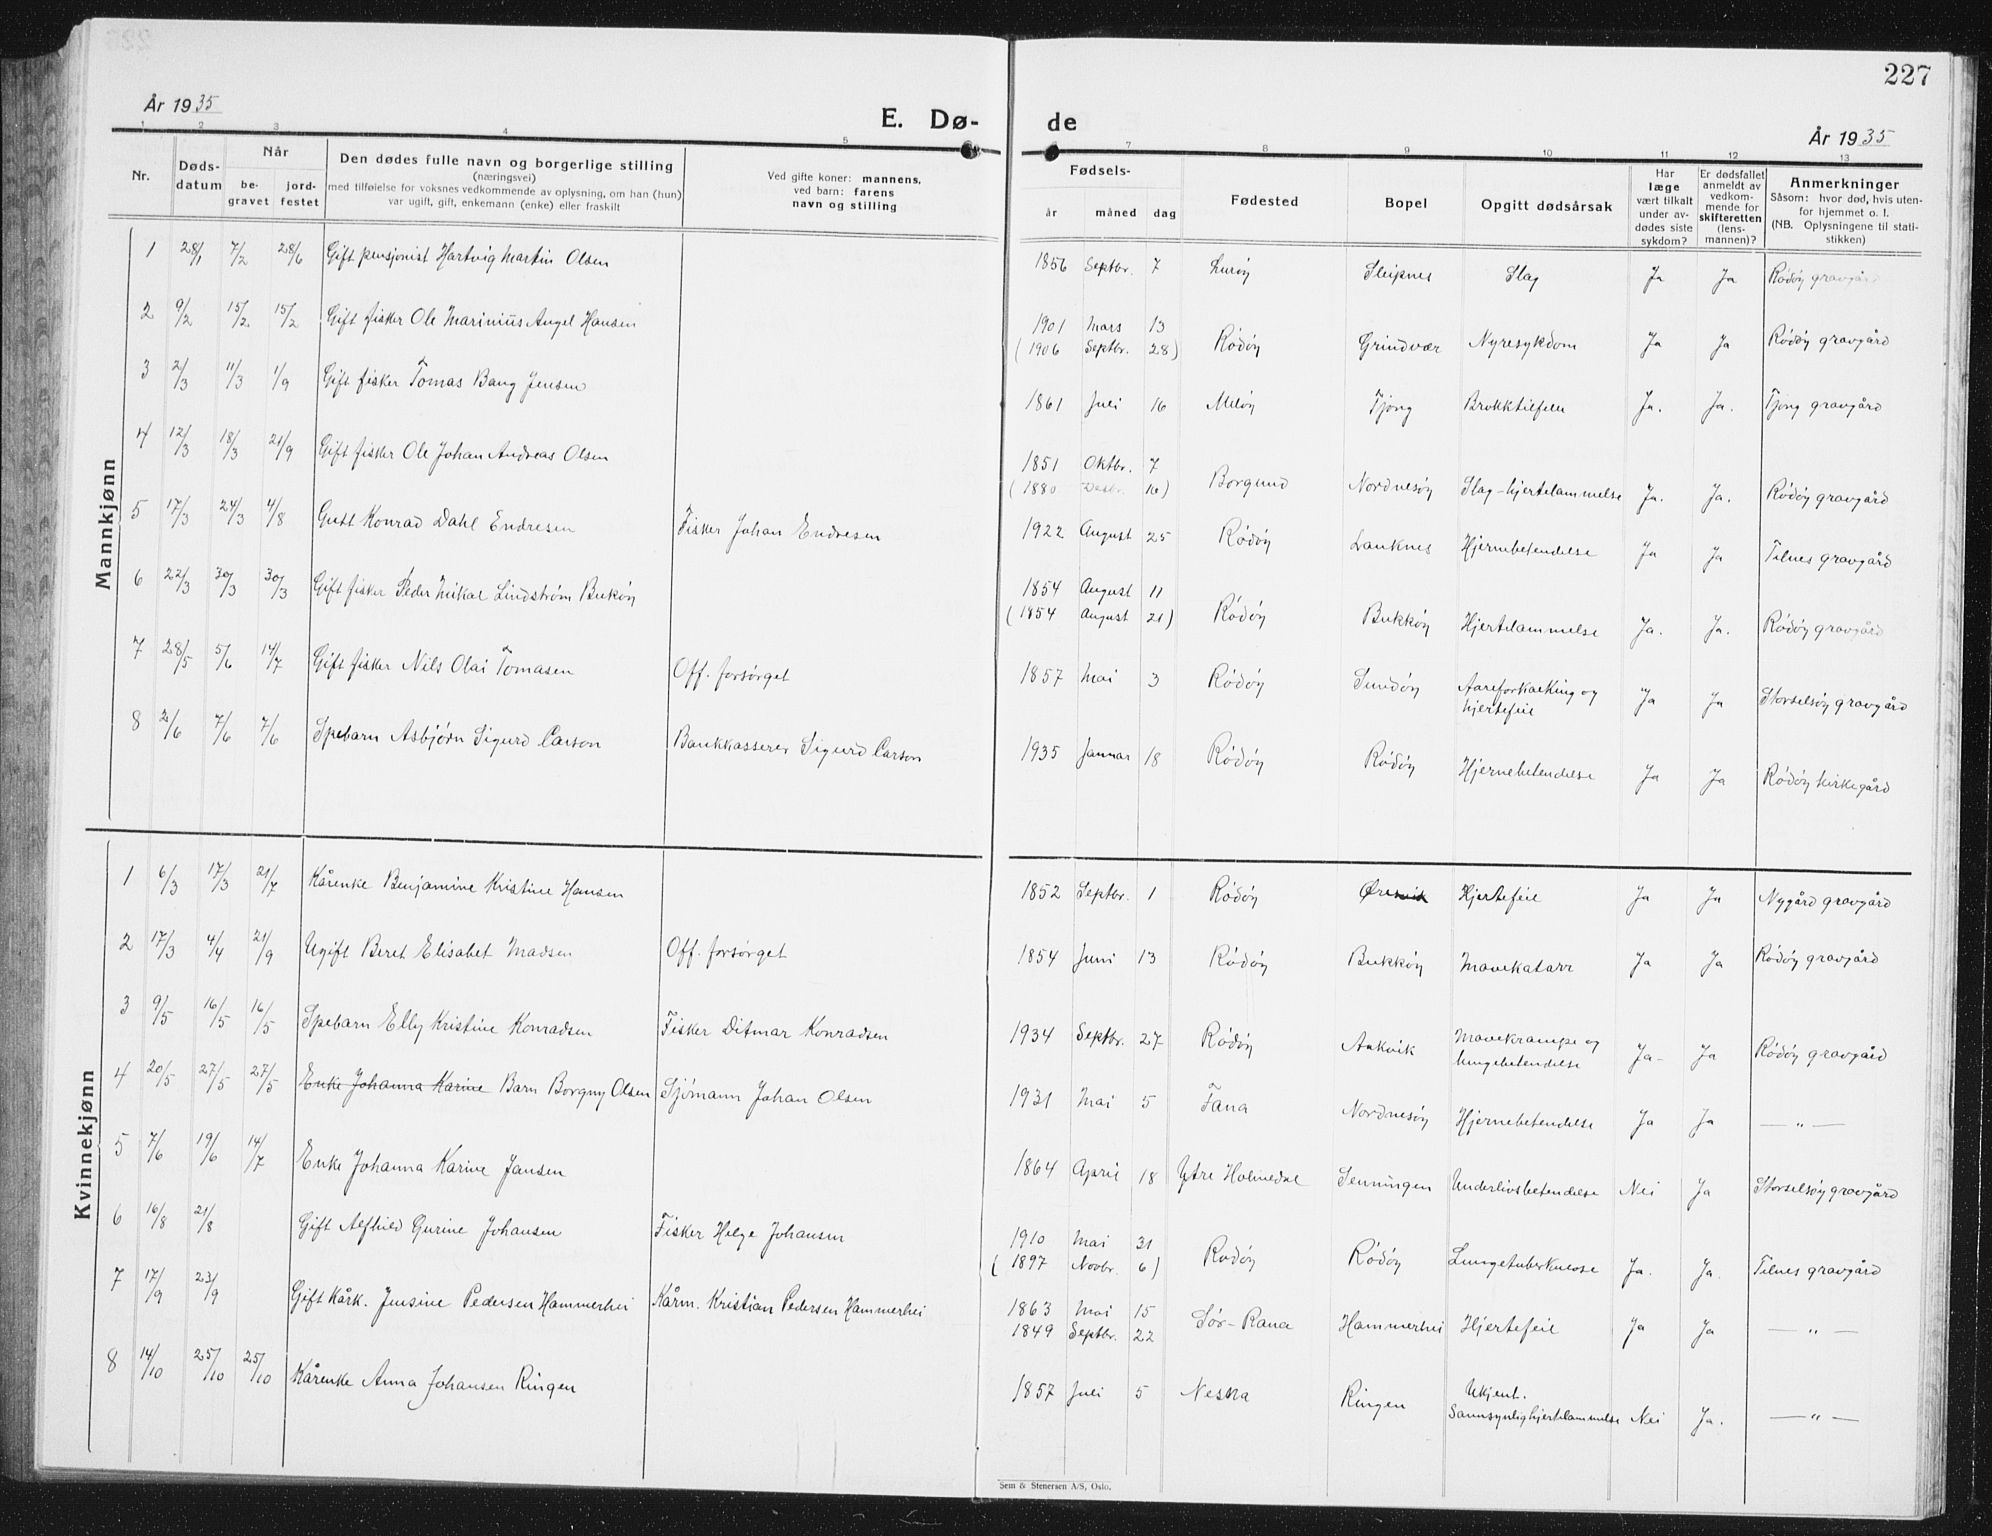 227
År 1935
E. Dø- de
År 1935
1 2 3 4 5 7 8 9 10 11 12 13
Nr. Døds-datum Når be-gravet jord-festet Den dødes fulle navn og borgerlige stilling (næringsvei) med tilføielse for voksnes vedkommende av oplysning, om han (hun) var ugift, gift, enkemann (enke) eller fraskilt Ved gifte koner: mannens, ved barn: farens navn og stilling Fødsels- år måned dag Fødested Bopel Opgitt dødsårsak Har læge vært tilkalt under av-dødes siste sykdom? Er dødsfallet anmeldt av vedkom-mende for skifteretten (lens-mannen)? Anmerkninger Såsom: hvor død, hvis uten-for hjemmet o. l. (NB. Oplysningene til stati-stikken)
Mannkjønn
1 28/1 7/2 28/6 Gift pensjonist Hartvig Martin Olsen 1856 Septbr. 7 Lurøy Sleipnes Slag Ja Ja Rödöy gravgård
2 9/2 15/2 15/2 Gift fisker Ole Marinius Angel Hansen 1901 Mars 13 Rödöy Grindvær Nyresykdom Ja Ja Rödöy gravgård
(1906 Septbr. 28)
3 2/3 11/3 1/9 Gift fisker Tomas Bang Jensen 1861 Juli 16 Meløy Tjong Brokktilfelle Ja. Ja. Tjong gravgård
4 12/3 18/3 21/9 Gift fisker Ole Johan Andreas Olsen 1851 Oktbr. 7 Borgund Nordnesöy Slag-hjertelammelse Ja. Ja. Rödöy gravgård
(1880 Desbr. 16)
5 17/3 24/3 4/8 Gutt Konrad Dahl Endresen Fisker Johan Endresen 1922 August 25 Rödöy Lauknes Hjernebetendelse Ja Ja Tilnes gravgård
6 22/3 30/3 30/3 Gift fisker Peder Mikal Lindström Buköy 1854 August 11 Rödöy Bukköy Hjertelammelse Ja. Ja. Rödöy gravgård
(1854 August 21)
7 28/5 5/6 14/7 Gift fisker Nils Olai Tomasen Off. forsörget 1857 Mai 3 Rödöy Sundöy Aareforkalking og hjertefeil Ja Ja Storselsöy gravgård
8 2/6 7/6 7/6 Spebarn Asbjörn Sigurd Carson Bankkasserer Sigurd Carson 1935 Januar 18 Rödöy Rödöy Hjernebetendelse Ja Ja Rödöy kirkegård
Kvinnekjønn
1 6/3 17/3 21/7 Kårenke Benjamine Kristine Hansen 1852 Septbr. 1 Rödöy Øresvik Hjertefeil Ja Ja Nygård gravgård
2 17/3 4/4 21/9 Ugift Beret Elisabet Madsen Off. forsörget 1854 Juni 13 Rödöy Bukköy Mavekatarr Ja Ja Rödöy gravgård
3 9/5 16/5 16/5 Spebarn Elly Kristine Konradsen Fisker Ditmar Konradsen 1934 Septbr. 27 Rödöy Aakvik Mavekrampe og lungebetendelse Ja- Ja Rödöy gravgård
4 20/5 27/5 27/5 Enke Johanna Karine Barn Borgny Olsen Sjömann Johan Olsen 1931 Mai 5 Fana Nordnesöy Hjernebetendelse Ja Ja — " —
5 7/6 19/6 14/7 Enke Johanna Karine Jansen 1864 April 18 Ytre Holmedal Senningen Underlivsbetendelse Nei Ja Storselsöy gravgård
6 16/8 21/8 Gift Alfhild Gurine Johansen Fisker Helge Johansen 1910 Mai 31 Rodöy Rödöy Lungetuberkulose Ja. Ja. Tilnes gravgård
(1897 Novbr. 6)
7 17/9 23/9 Gift kårk. Jensine Pedersen Hammerhei Kårm. Kristian Pedersen Hammerhei 1863 Mai 15 Sør-Rana Hammerhei Hjertefeil Ja Ja — " —
1849 Septbr. 22
8 14/10 25/10 25/10 Kårenke Anna Johansen Ringen 1857 Juli 5 Nesna Ringen Ukjent. Sannsynlig hjertelammelse Nei Ja. — " —
Sem & Stenersen A/S, Oslo.